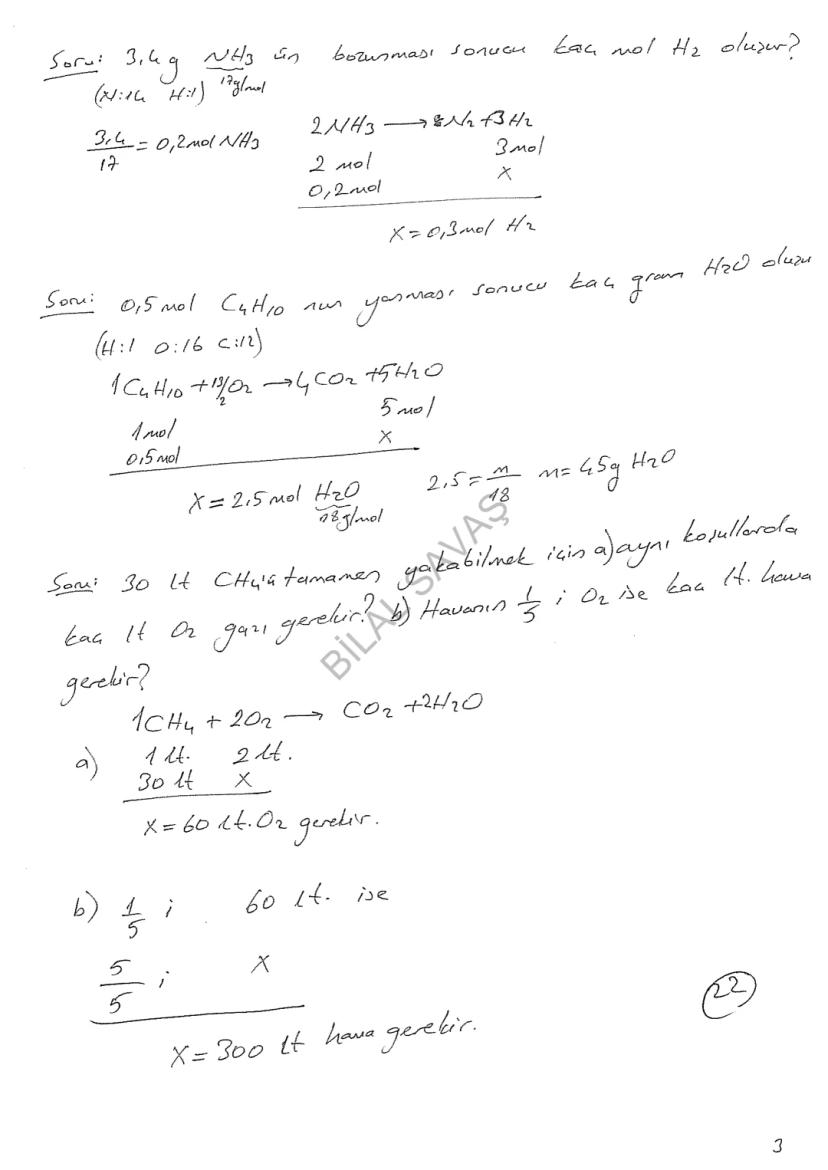 Soru: 3,4 g NH3 ün bozunması sonucu kaç mol H2 oluşur?
(N:14 H:1) 17g/mol
3,4/17 = 0,2 mol NH3
2NH3 → N2 + 3H2
2 mol 3 mol
0,2 mol X
X = 0,3 mol H2
Soru: 0,5 mol C4H10 nun yanması sonucu kaç gram H2O oluşu
(H:1 O:16 C:12)
1C4H10 + 13/2 O2 → 4CO2 + 5H2O
1 mol 5 mol
0,5 mol X
X = 2,5 mol H2O 2,5 = m/18 m = 45g H2O
18g/mol
Soru: 30 lt CH4'ü tamamen yakabilmek için a) aynı koşullarda
kaç lt O2 gazı gerekir? b) Havanın 1/5 i O2 ise kaç lt. hava
gerekir?
1CH4 + 2O2 → CO2 + 2H2O
a) 1 lt. 2 lt.
30 lt X
X = 60 lt. O2 gerekir.
b) 1/5 i 60 lt. ise
5/5 i X
X = 300 lt hava gerekir.
22
BİLAL SAVAŞ
3